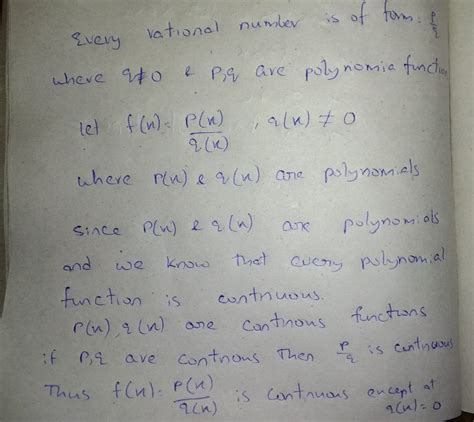 Every rational number is of form: p/q
where q≠0 & P,q are polynomia function
let f(x)= P(x)/q(x) , q(x) ≠ 0
where P(x) & q(x) are polynomials
since P(x) & q(x) are polynomials
and we know that every polynomial
function is contnuous.
P(x), q(x) are continous functions
if P,q are contnous Then P/q is continuous
Thus f(x)= P(x)/q(x) is continuous except at
q(x)=0